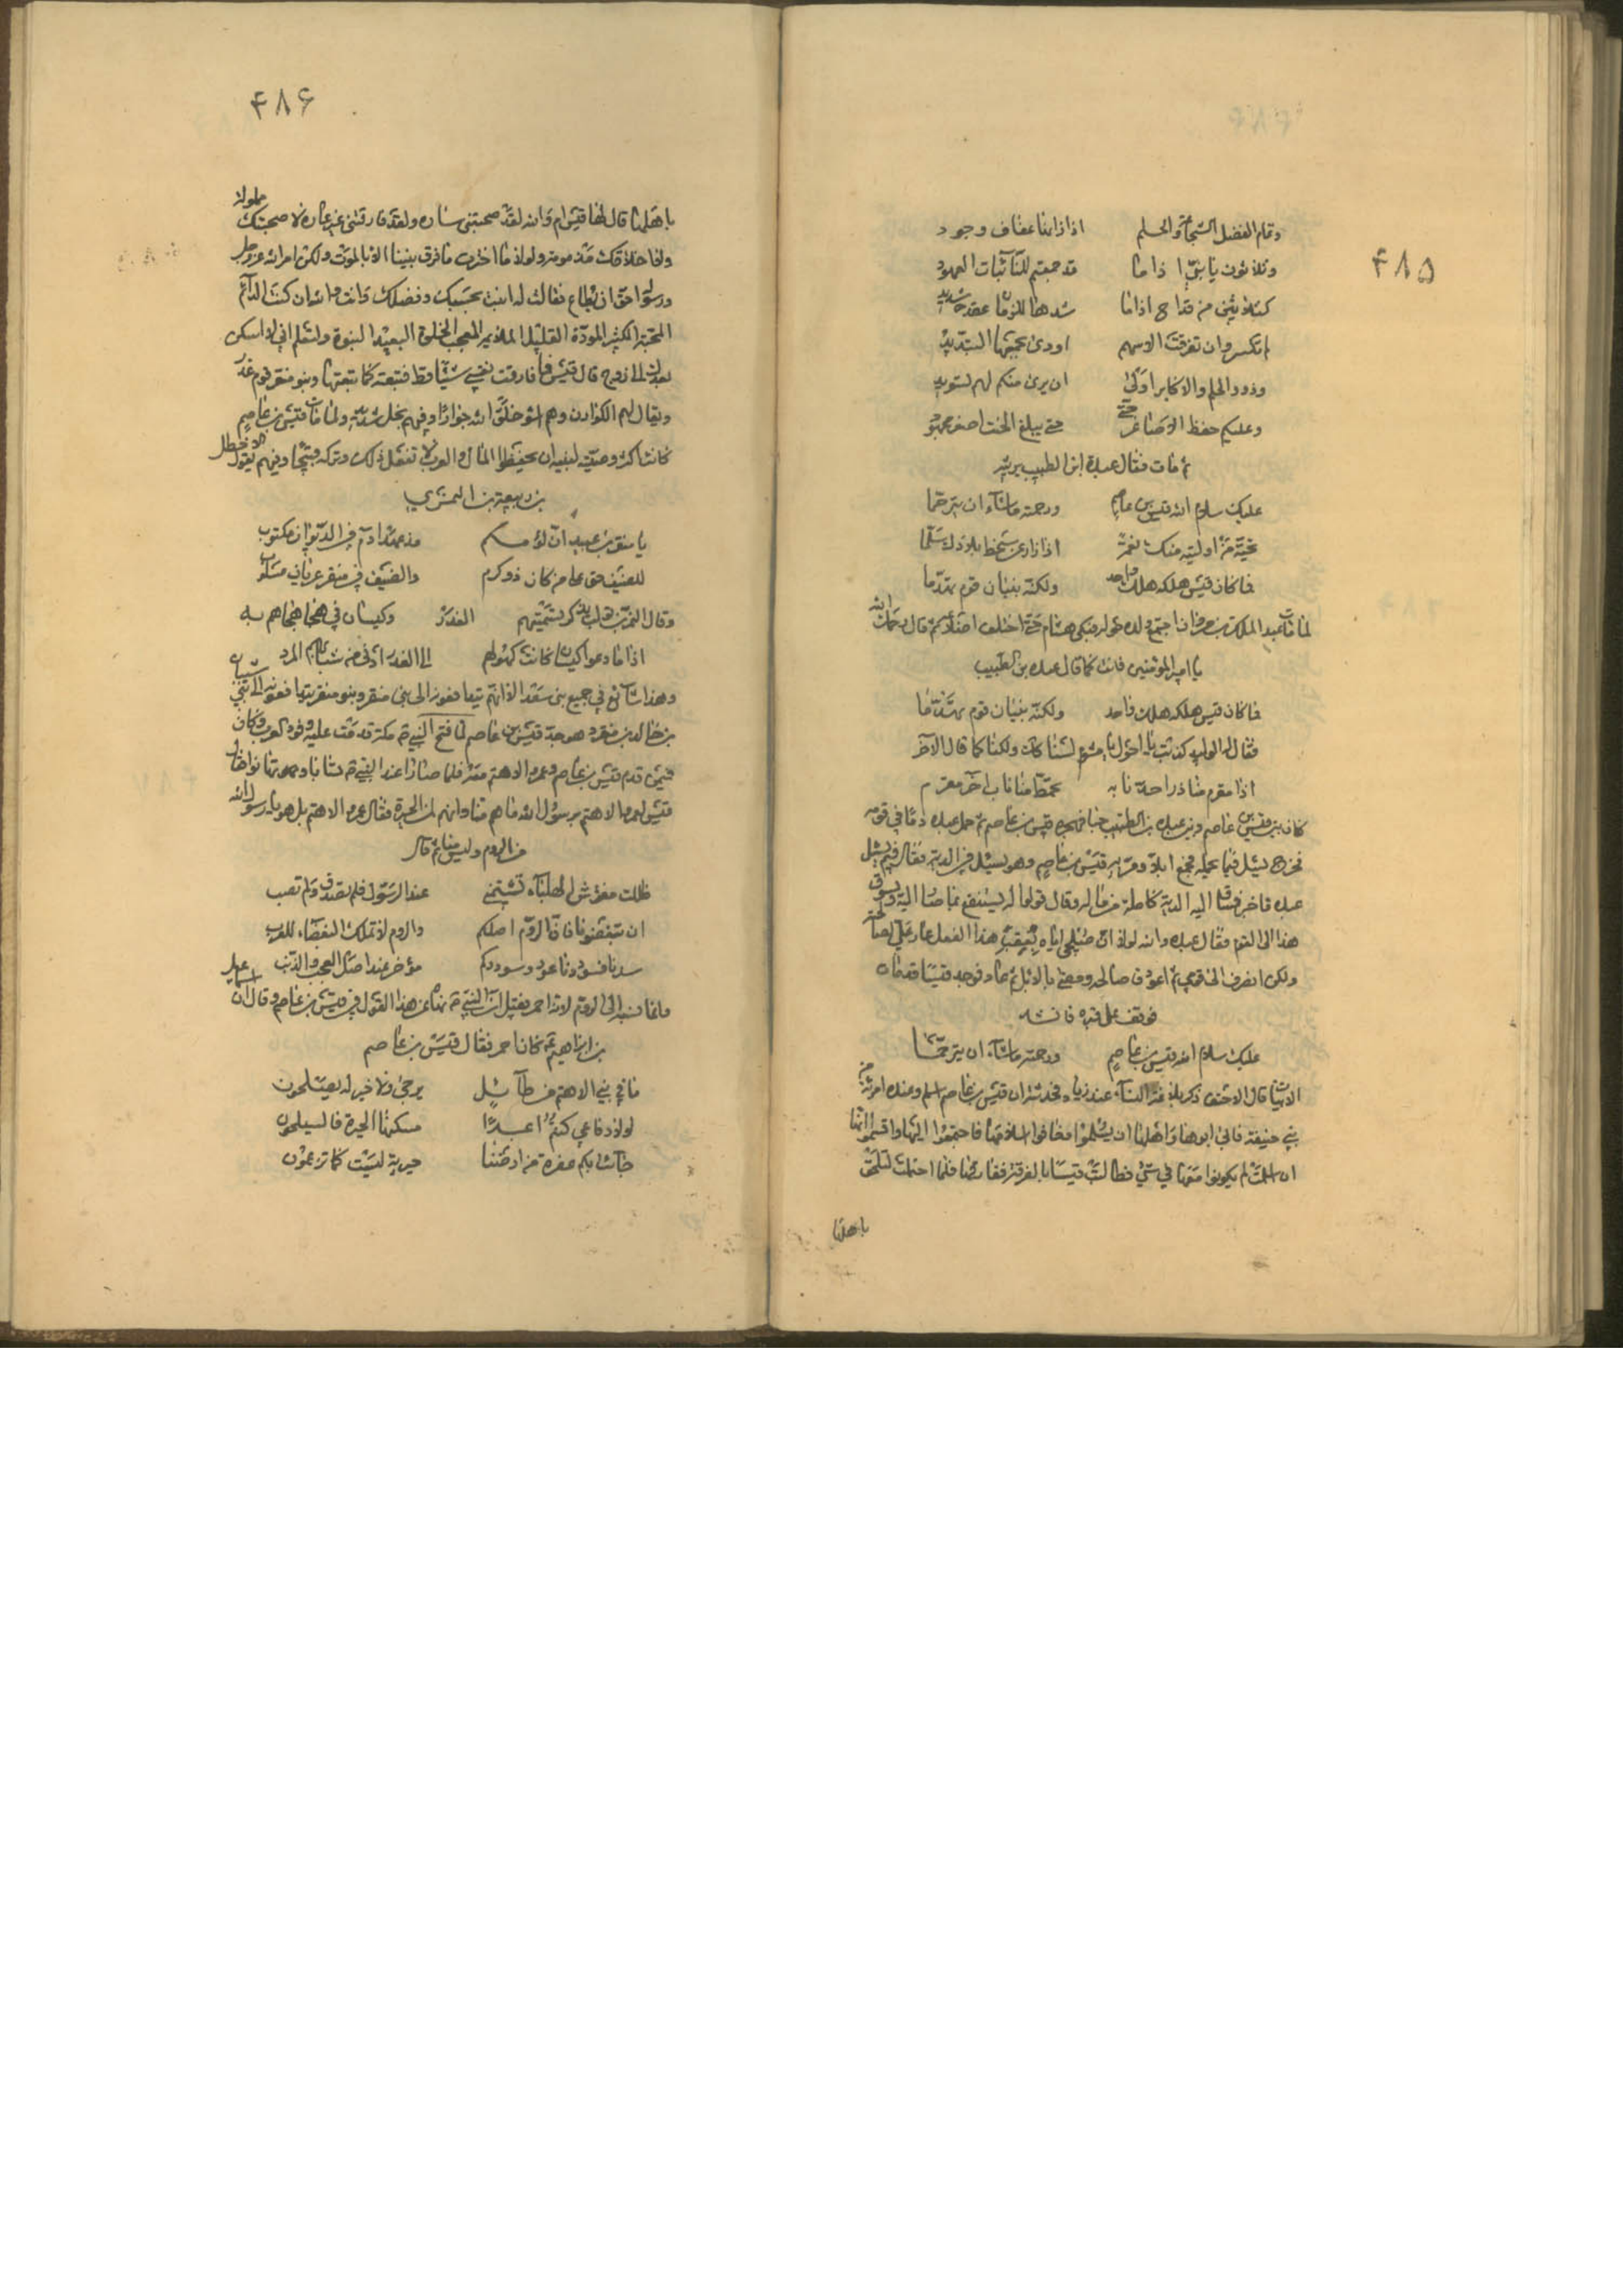 ۴۸۵
وتمام الفضل الشجاعة والحلم اذا زانها عفاف وجود
وثلاثون يا بنيّ اذا ما قد جمعتم للنائبات العهود
كثلاثين من قداح اذا ما شدها للزمان عقد شديد
لم تكسر وان تفرقت الاسهم اودى بجمعها التبديد
وذوو الحلم والاكابر اولى ان يرى منكم لهم تسويد
وعليكم حفظ الاصاغر حتى يبلغ الحنث اصغر مجهود
ثم مات فقال عبدة ابن الطبيب يرثيه
عليك سلام الله قيس بن عاصم ورحمته ما شاء ان يترحما
تحية من اوليته منك نعمة اذا زار عن شحط بلادك سلما
فما كان قيس هلكه هلك واحد ولكنه بنيان قوم تهدما
لما مات عبد الملك بن مروان اجتمع ولده حوله فبكى هشام حتى اختلف اضلاعه ثم قال رحمك الله
يا امير المؤمنين فانت كما قال عبدة بن الطبيب
فما كان قيس هلكه هلك واحد ولكنه بنيان قوم تهدّما
فقال له الوليد كذبت يا احول يا مشوم لسنا كذلك ولكنا كما قال الآخر
اذا مقرم منا ذرا حد نابه تخمط منا ناب آخر مقرم
كان بين قيس بن عاصم وبين عبدة بن الطبيب فهجره قيس بن عاصم ثم حمل عبدة دما في قومه
فخرج يسئل فيما تحمله فجمع ابلا ومرّ به قيس بن عاصم وهو يسئل في الدية فقال فيم يسئل
عبدة فاخبر فساق اليه الدية كاملة من ماله وقال قولوا له ليستنفع بما صار اليه وليسق
هذا الى القوم فقال عبدة والله لولا ان صلحي اياه بعقب هذا الفعل عار علي لصالحته
ولكن انصرف الى قومي ثم اعود فاصالحه ومضى بالابل ثم عاد فوجد قيسا قد مات
فوقف على قبره فانشد
عليك سلام الله قيس بن عاصم ورحمته ما شاء ان يترحّما
الابيات قال الاحنف ذكر بلاغة النساء عند زياد فحدثته ان قيس بن عاصم اسلم وعنده امرأة من
بني حنيفة فابى ابوها واهلها ان يسلموا فخافوا اسلامها فاجتمعوا اليها واقسموا انها
ان اسلمت لم يكونوا معها في شيء فطالبت قيسا بالفرقة ففارقها فلما احتملت لتلحق
باهلها
۴۸۶
باهلها قال لها قيس اما والله لقد صحبتني سارة ولقد فارقتني غير عارة لا صحبتك مملولة
ولا اخلاقك مذمومة ولولا ما اخترت ما فرق بيننا الا الموت ولكن امر الله عز وجل
ورسوله احق ان يطاع فقالت له انبئت بحسبك وفضلك وانت والله ان كنت الدائم
المحبة الكثير المودة القليل اللائمة المعجب الخلوة البعيد النبوة ولتعلم اني لا اسكن
بعدك الى زوج قال قيس فما فارقت نفسي شيئا قط فتبعته كما تبعتها وبنو منقر قوم غدر
ويقال لهم الكوادن وهم اسوء خلق الله جوارا وفيهم بخل شديد ولما مات قيس بن عاصم
كانت اكثر وصيته لبنيه ان يحفظوا المال والعرب لا تفعل ذلك وتراه قبيحا وفيهم يقول الاخطل
بن ربيعة بن النمري
يا منقر بن عبيد ان لؤمكم مذ عهد آدم في الديوان مكتوب
للضيف حق على من كان ذو كرم والضيف في منقر عريان مسلوب
وقال النمر بن تولب يذكر تسميتهم الغدر كيسان في هجاء هجاهم به
اذا ما دعوا كيسان كانت كهولهم الى الغدر ادنى من شبابهم المرد
وهذا شائع في جميع بني سعد الا انهم يتدافعونه الى بني منقر وبنو منقر يتدافعونه الى بني سنان
بن خالد بن منقر وهو جد قيس بن عاصم لما فتح النبي مكة قدمت عليه وفود العرب فكان
فيمن قدم قيس بن عاصم وعمرو الاهتم معه فلما صارا عند النبي تسابا وتهاترا فقال
قيس لعمرو الاهتم يرسول الله ما هم منا وانهم لمن الحيرة فقال عمرو الاهتم بل هو يا رسول الله
من الروم وليس منا ثم قال
ظللت مفترش الهلباء تشتمني عند الرسول فلم تصدق ولم تصب
ان تبغضونا فان الروم اصلكم والروم لا تملك البغضاء للعرب
سدنا فسوددنا عود وسوددكم مؤخر عند اصل العجب والذنب
وانما نسبه الى الروم لانه احمر فقيل ان النبي نهاه عن هذا القول في قيس بن عاصم وقال ان اسمعيل
بن ابراهيم كان احمر فقال قيس بن عاصم
ما في بني الاهتم من طائل يرجى ولا خير له يصلحون
لولا دفاعي كنتم اعبدًا مسكنها الحيرة فالسيلحون
جائت بكم عفرة من ارضها حيرية ليست كما تزعمون